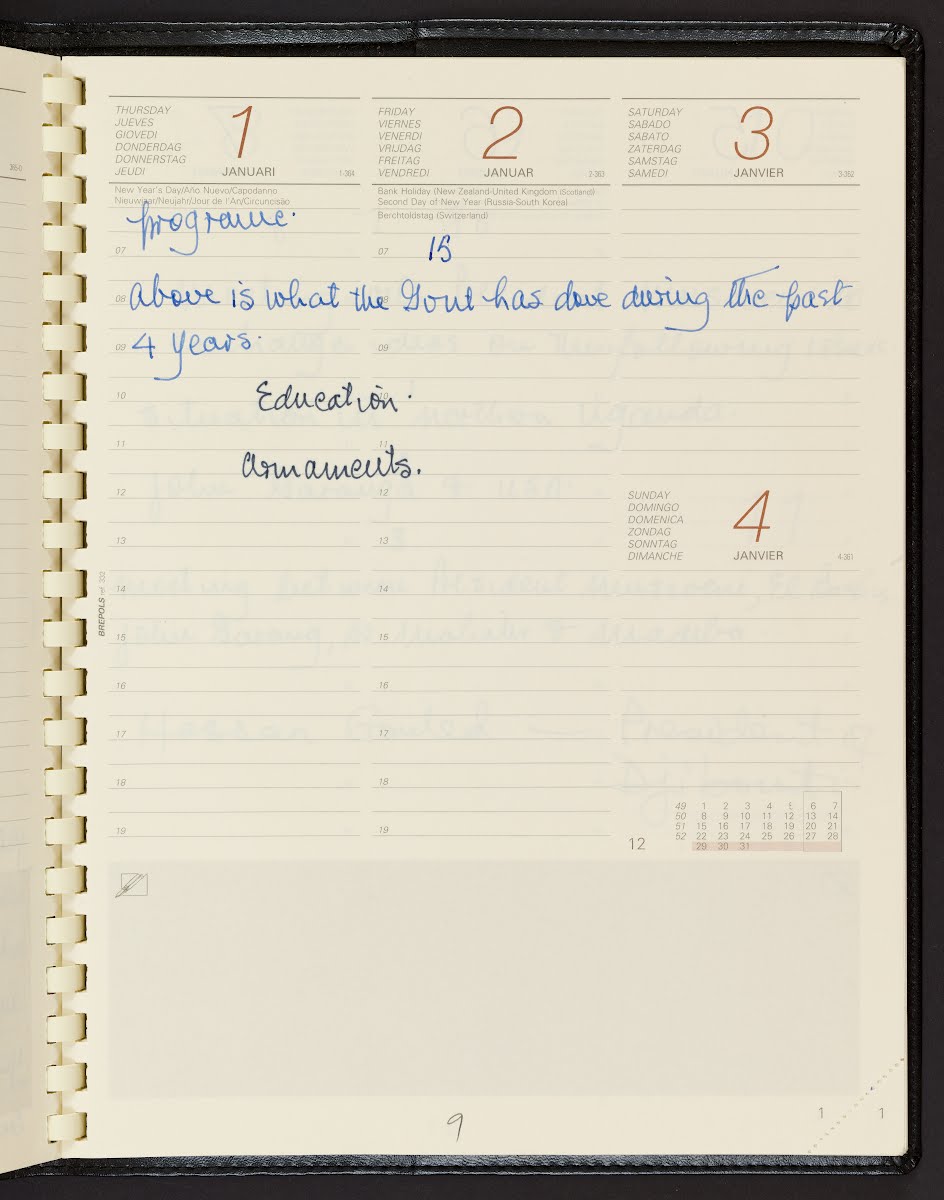 THURSDAY
JUEVES
GIOVEDI
DONDERDAG
DONNERSTAG
JEUDI
1
JANUARI
1-364
New Year's Day/Año Nuevo/Capodanno
Nieuwjaar/Neujahr/Jour de l'An/Circuncisão
FRIDAY
VIERNES
VENERDI
VRIJDAG
FREITAG
VENDREDI
2
JANUAR
2-363
Bank Holiday (New Zealand-United Kingdom (Scotland)
Second Day of New Year (Russia-South Korea)
Berchtoldstag (Switzerland)
SATURDAY
SABADO
SABATO
ZATERDAG
SAMSTAG
SAMEDI
3
JANVIER
3-362
programe.
15
07 07
above is what the Govt has done during the past
08 08
4 years.
09 09
Education.
10 10
Armaments.
11 11
12 12
13 13
14 14
15 15
16 16
17 17
18 18
19 19
SUNDAY
DOMINGO
DOMENICA
ZONDAG
SONNTAG
DIMANCHE
4
JANVIER
4-361
BREPOLS ref. 332
12
49 1 2 3 4 5 6 7
50 8 9 10 11 12 13 14
51 15 16 17 18 19 20 21
52 22 23 24 25 26 27 28
29 30 31
9
1 1